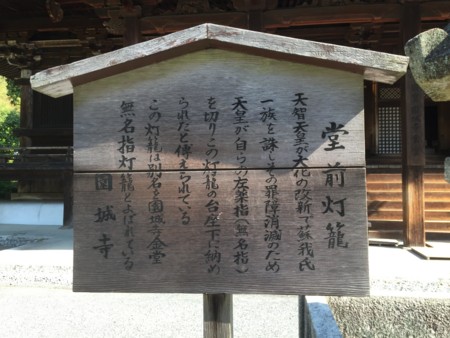 堂前灯籠
天智天皇が大化の改新で蘇我氏
一族を誅しその罪障消滅のため
天皇が自らの左薬指(無名指)
を切りこの灯籠の台座下に納め
られたと伝えられている
この灯籠は別名を園城寺金堂
無名指灯籠と云われている
園城寺